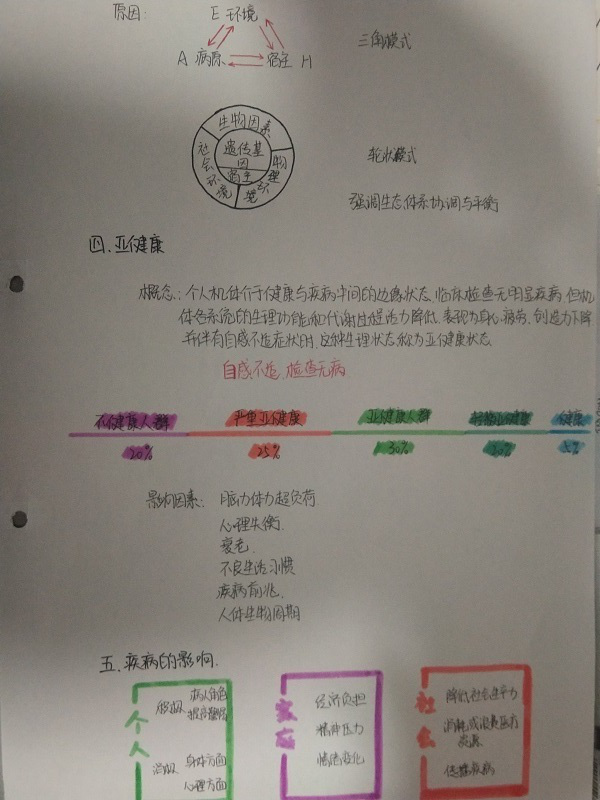 原因: E 环境
A 病原 宿主 H
三角模式
生物因素
社会环境
遗传基因
宿主
物理
轮状模式
强调生态体系协调与平衡
四、亚健康
概念: 个人机体介于健康与疾病中间的边缘状态,临床检查无明显疾病,但机
体各系统的生理功能和代谢过程活力降低,表现为身心疲劳,创造力下降
并伴有自感不适症状时,这种生理状态称为亚健康状态
自感不适,检查无病
不健康人群 严重亚健康 亚健康人群 轻微亚健康 健康
20% 25% 30% 20% 5%
影响因素: 脑力体力超负荷
心理失衡
衰老
不良生活习惯
疾病前兆
人体生物周期
五、疾病的影响
个人
积极 病人角色
提高警惕
消极 身体方面
心理方面
家庭
经济负担
精神压力
情绪变化
社会
降低社会生产力
消耗或浪费医疗
资源
传播疾病